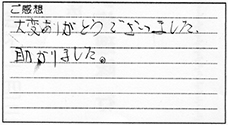 ご感想
大変ありがとうございました。
助かりました。